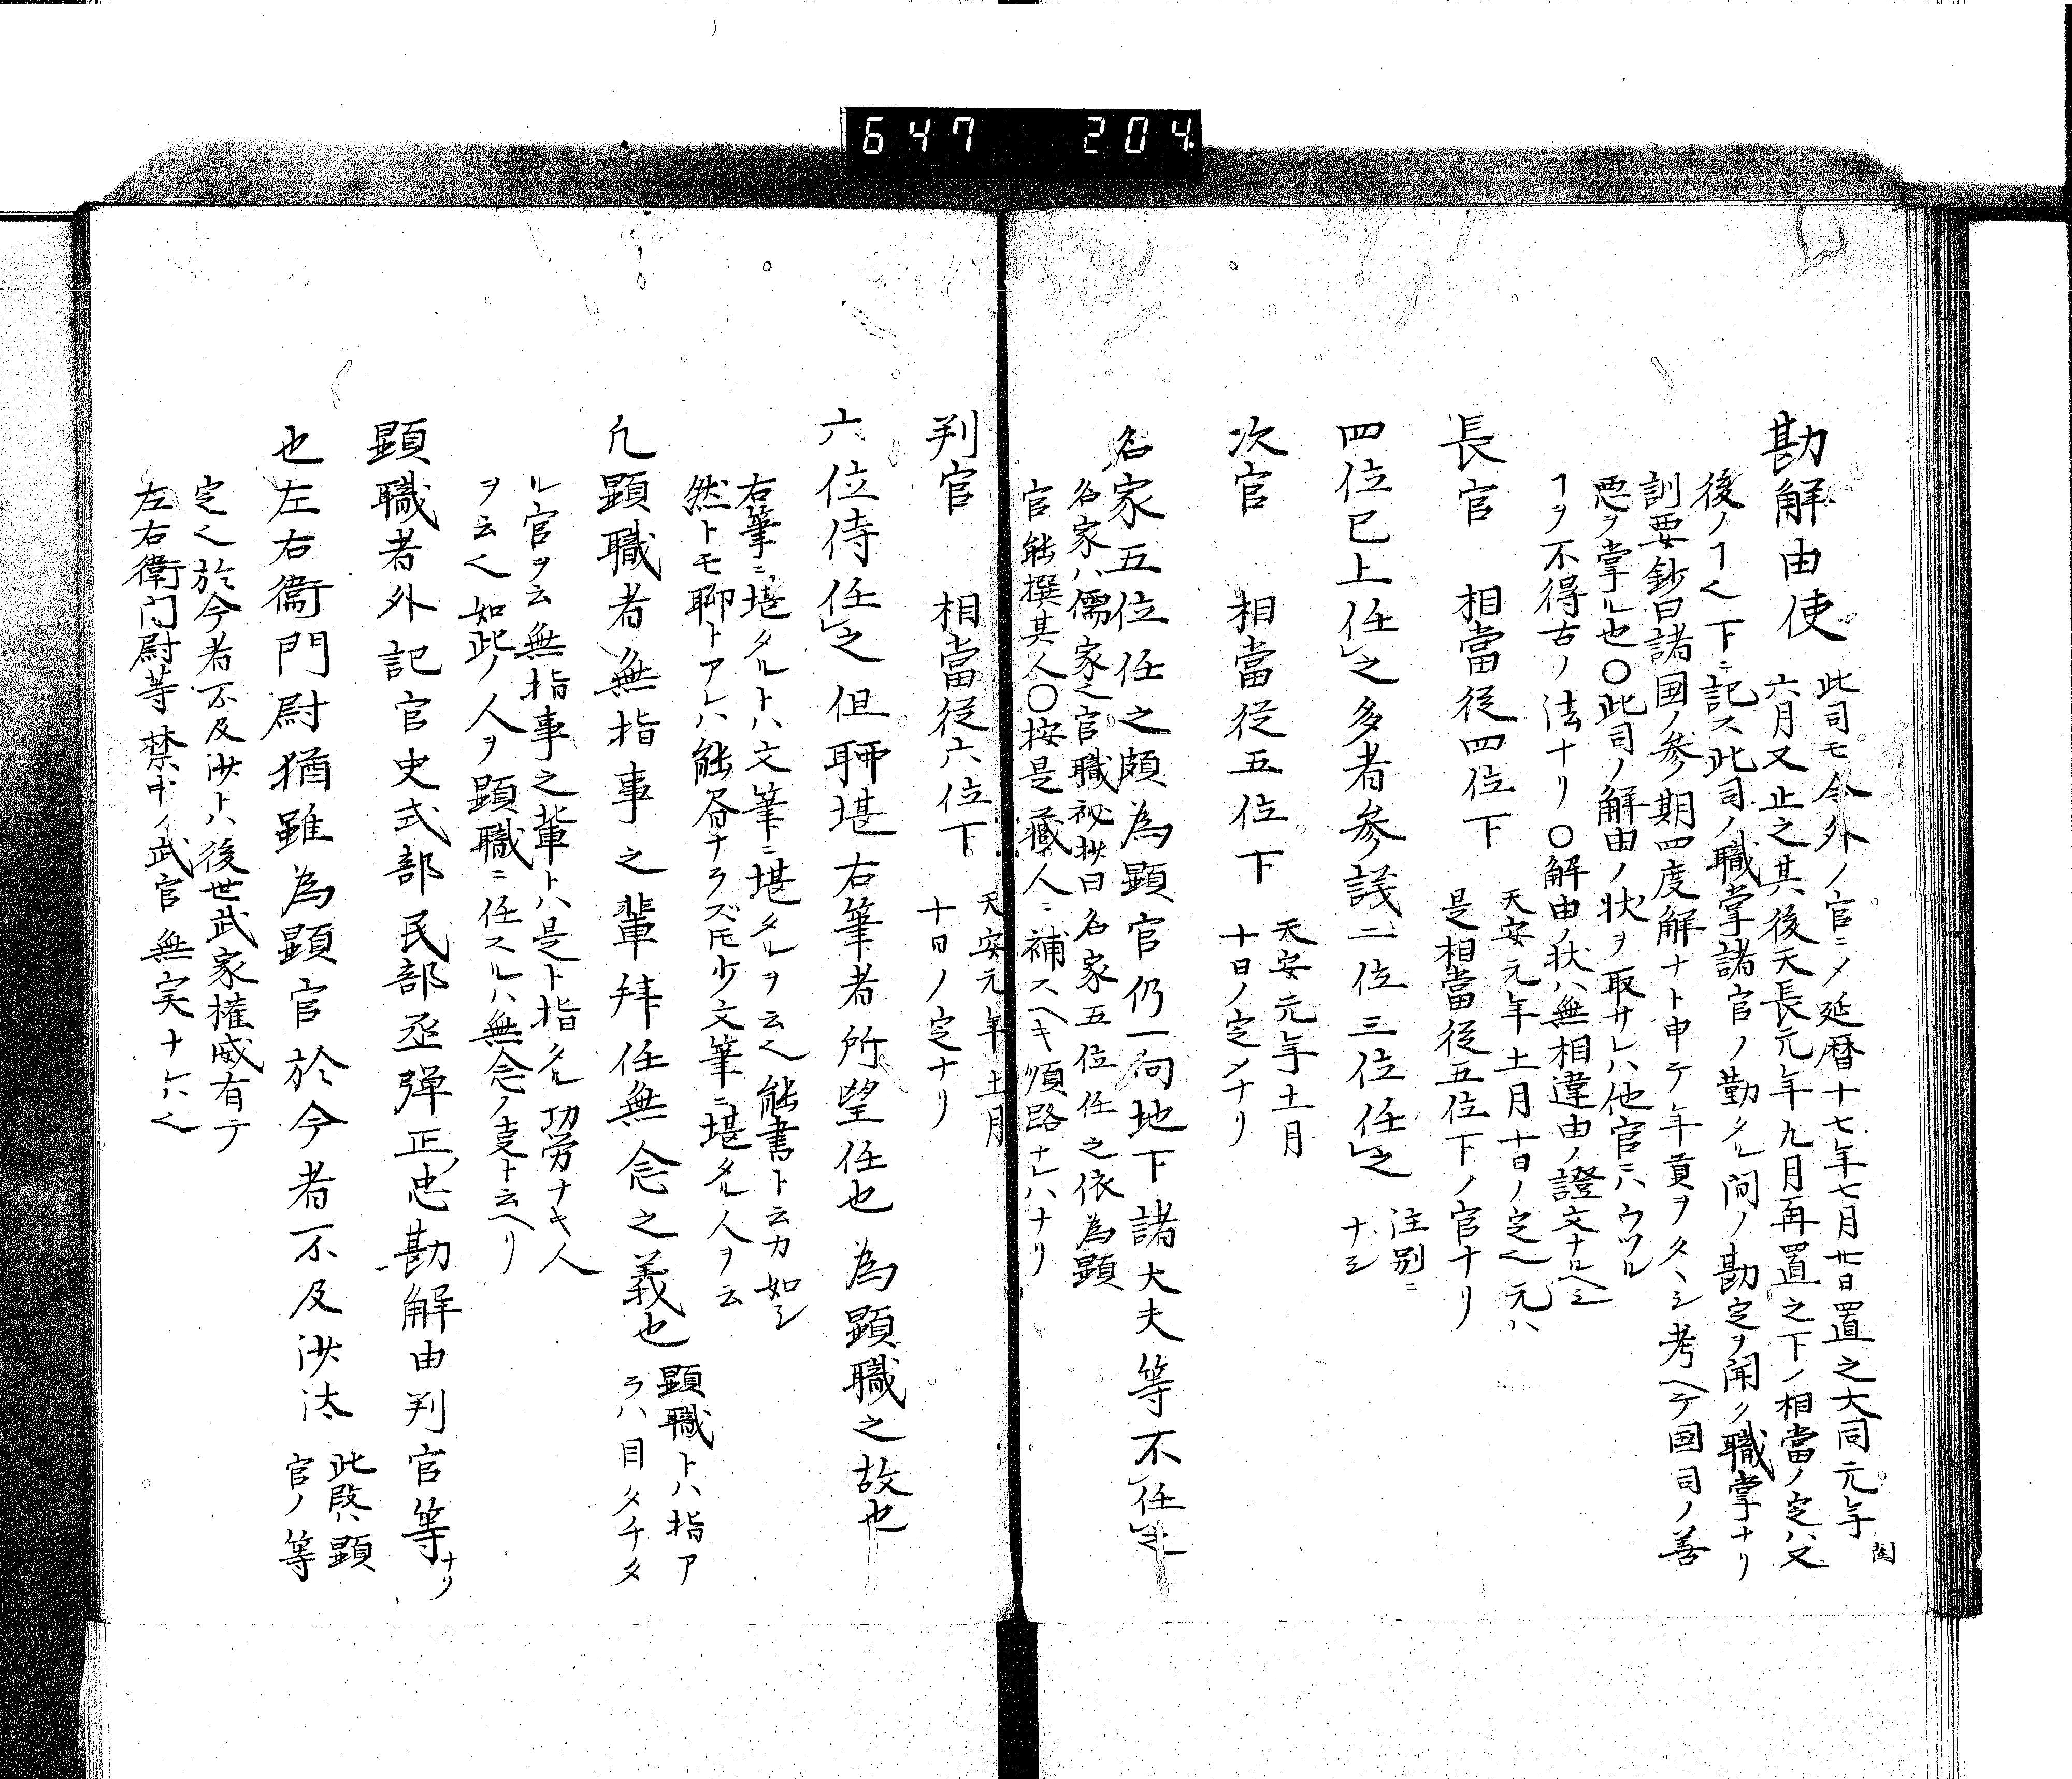 647 204
勘解由使
此司モ令外ノ官ニメ延暦十七年七月廿日置之大同元年閏
六月又止之其後天長元年九月再置之下ノ相當ノ定ハ又
後ノヿ也下ニ記ス此司ノ職掌諸官ノ勤タル問ノ勘定ヲ聞ク職掌ナリ
訓要鈔曰諸国ノ參ノ期四度解ナト申テ年貢ヲタヽシ考ヘテ国司ノ善
悪ヲ掌ル也〇此司ノ解由ノ状ヲ取サレハ他官ニハウツル
ヿヲ不得古ノ法ナリ〇解由ノ状ハ無相違由ノ證文ナルヘシ
長官 相當従四位下
天安元年十一月十日ノ定也元ハ
是相當従五位下ノ官ナリ
四位已上任之多者參議二位三位任之
注別ニ
ナシ
次官 相當従五位下
天安元年十一月
十日ノ定メナリ
名家五位任之頗為顕官仍一向地下諸大夫等不任之
名家ハ儒家之官職秘抄曰名家五位任之依為顕
官能撰其人〇按是蔵人ニ補スヘキ順路ナレハナリ
判官 相當従六位下
天安元年十一月
十日ノ定ナリ
六位侍任之但聊堪右筆者所望任也為顕職之故也
右筆ニ堪タルトハ文筆ニ堪タルヲ云也能書ト云カ如シ
然トモ聊トアレハ能名ナラズ𪜈少文筆ニ堪タル人ヲ云
凡顕職者無指事之輩拜任無念之義也
顕職トハ指ア
ラハ目タチタ
ル官ヲ云無指事之輩トハ是ト指タル功労ナキ人
ヲ云也如此ノ人ヲ顕職ニ任スルハ無念ノ支ト云ヘリ
顕職者外記官史式部民部丞弾正忠勘解由判官等ナリ
也左右衛門尉猶雖為顕官於今者不及沙汰
此段ハ顕
官ノ等
定也於今者不及沙汰トハ後世武家權威有テ
左右衛門尉等禁中ノ武官無実ナレハ也